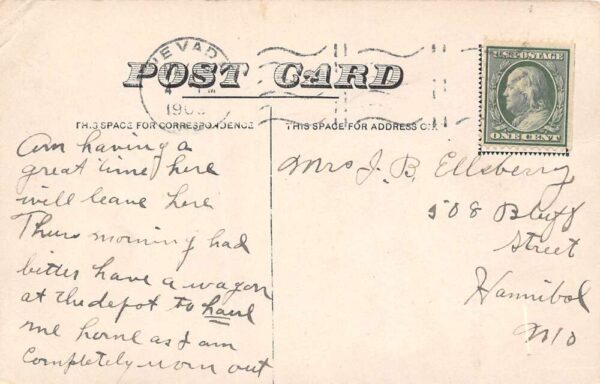 NEVADA
190
POST CARD
U.S. POSTAGE
ONE CENT
THIS SPACE FOR CORRESPONDENCE
THIS SPACE FOR ADDRESS O
Am having a
great time here
will leave here
Thurs morning had
bitter have a wagon
at the depot to haul
me home as I am
Completely worn out
Mrs J. B. Ellsberry
508 Bluff
Street
Hannibal
Mo